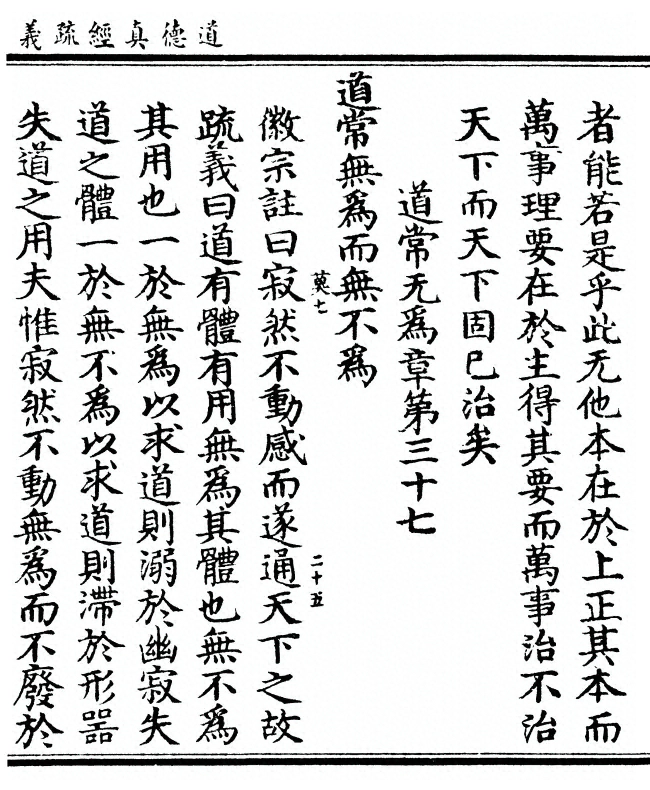 道德真經疏義
者能若是乎此无他本在於上正其本而
萬事理要在於主得其要而萬事治不治
天下而天下固已治矣
道常无為章第三十七
道常無爲而無不爲
羙七
二十五
徽宗註曰寂然不動感而遂通天下之故
疏義曰道有體有用無爲其體也無不爲
其用也一於無爲以求道則溺於幽寂失
道之體一於無不爲以求道則滯於形器
失道之用夫惟寂然不動無爲而不廢於